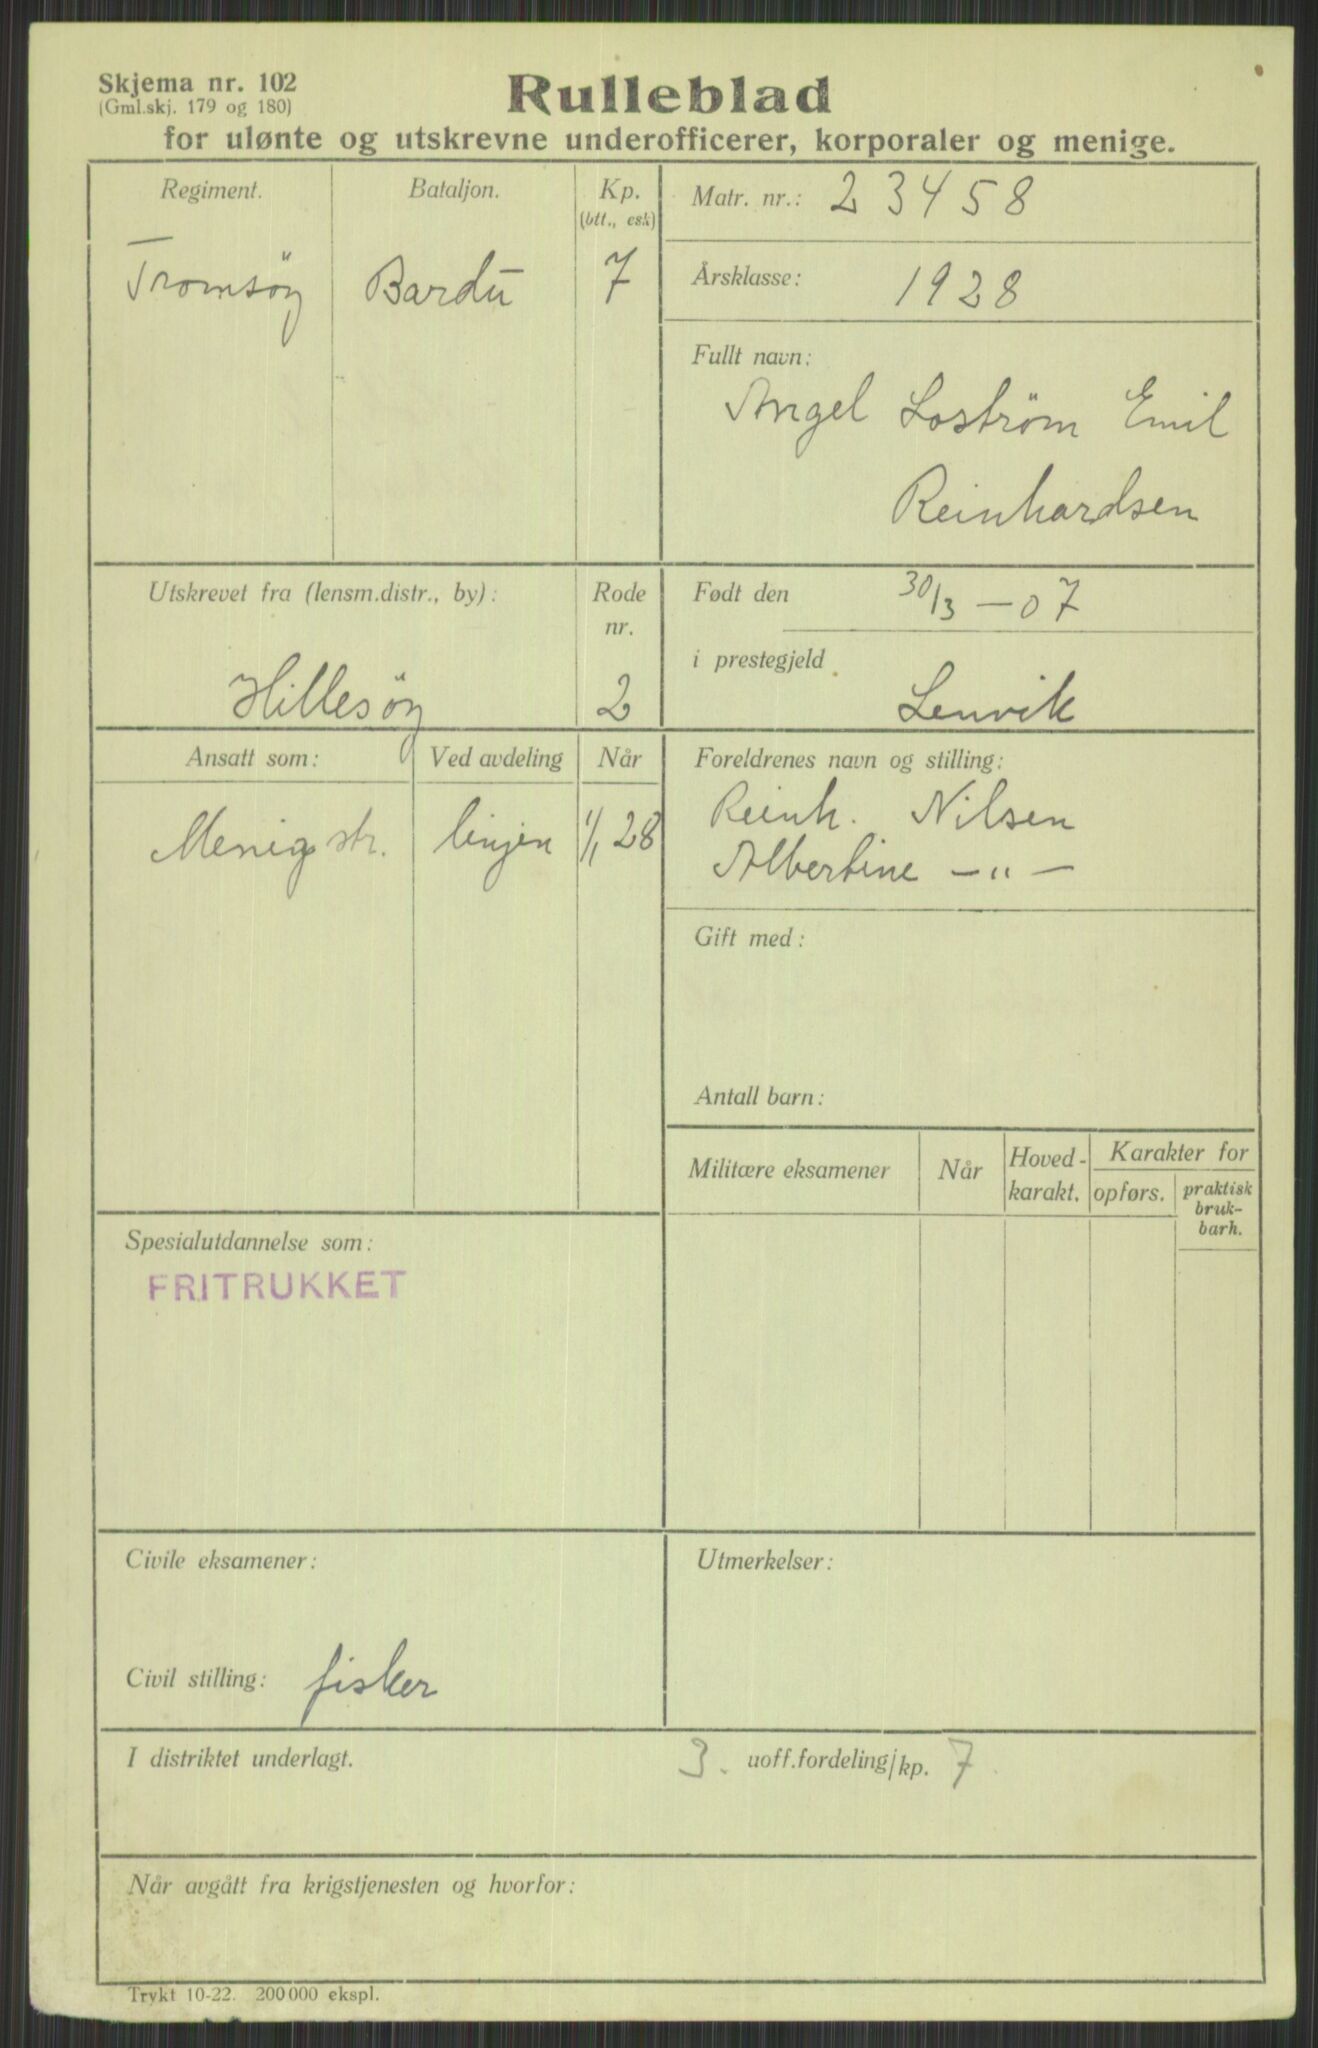 Skjema nr. 102
(Gml.skj. 179 og 180)
Rulleblad
for ulønte og utskrevne underofficerer, korporaler og menige.
Regiment.
Bataljon.
Kp.
(btt., esk)
Tromsöy
Bardu
7
Matr. nr.: 23458
Årsklasse: 1928
Fullt navn:
Angel Loström Emil
Reinhardsen
Utskrevet fra (lensm.distr., by):
Rode
nr.
Hillesöy
2
Født den 30/3 — 07
i prestegjeld
Lenvik
Ansatt som:
Ved avdeling
Når
Menig str.
linjen
1/1 28
Foreldrenes navn og stilling:
Reinh. Nilsen
Albertine —"—
Gift med:
Antall barn:
Militære eksamener
Når
Hoved-
karakt.
Karakter for
opførs.
praktisk
bruk-
barh.
Spesialutdannelse som:
FRITRUKKET
Civile eksamener:
Civil stilling: fisker
Utmerkelser:
I distriktet underlagt.
3. uoff.fordeling/kp. 7
Når avgått fra krigstjenesten og hvorfor:
Trykt 10-22. 200 000 ekspl.